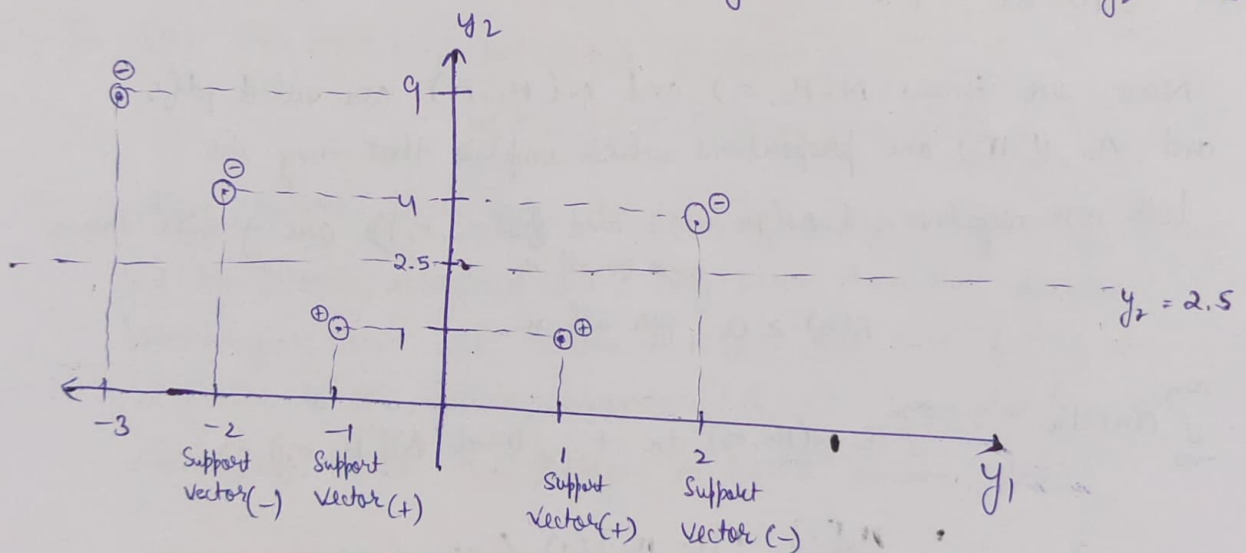 y₂
⊖
9
⊖
4
⊖
2.5
y₂ = 2.5
⊕
1
⊕
-3 -2 -1 1 2
y₁
Support
vector(-)
Support
vector(+)
Support
vector(+)
Support
vector(-)